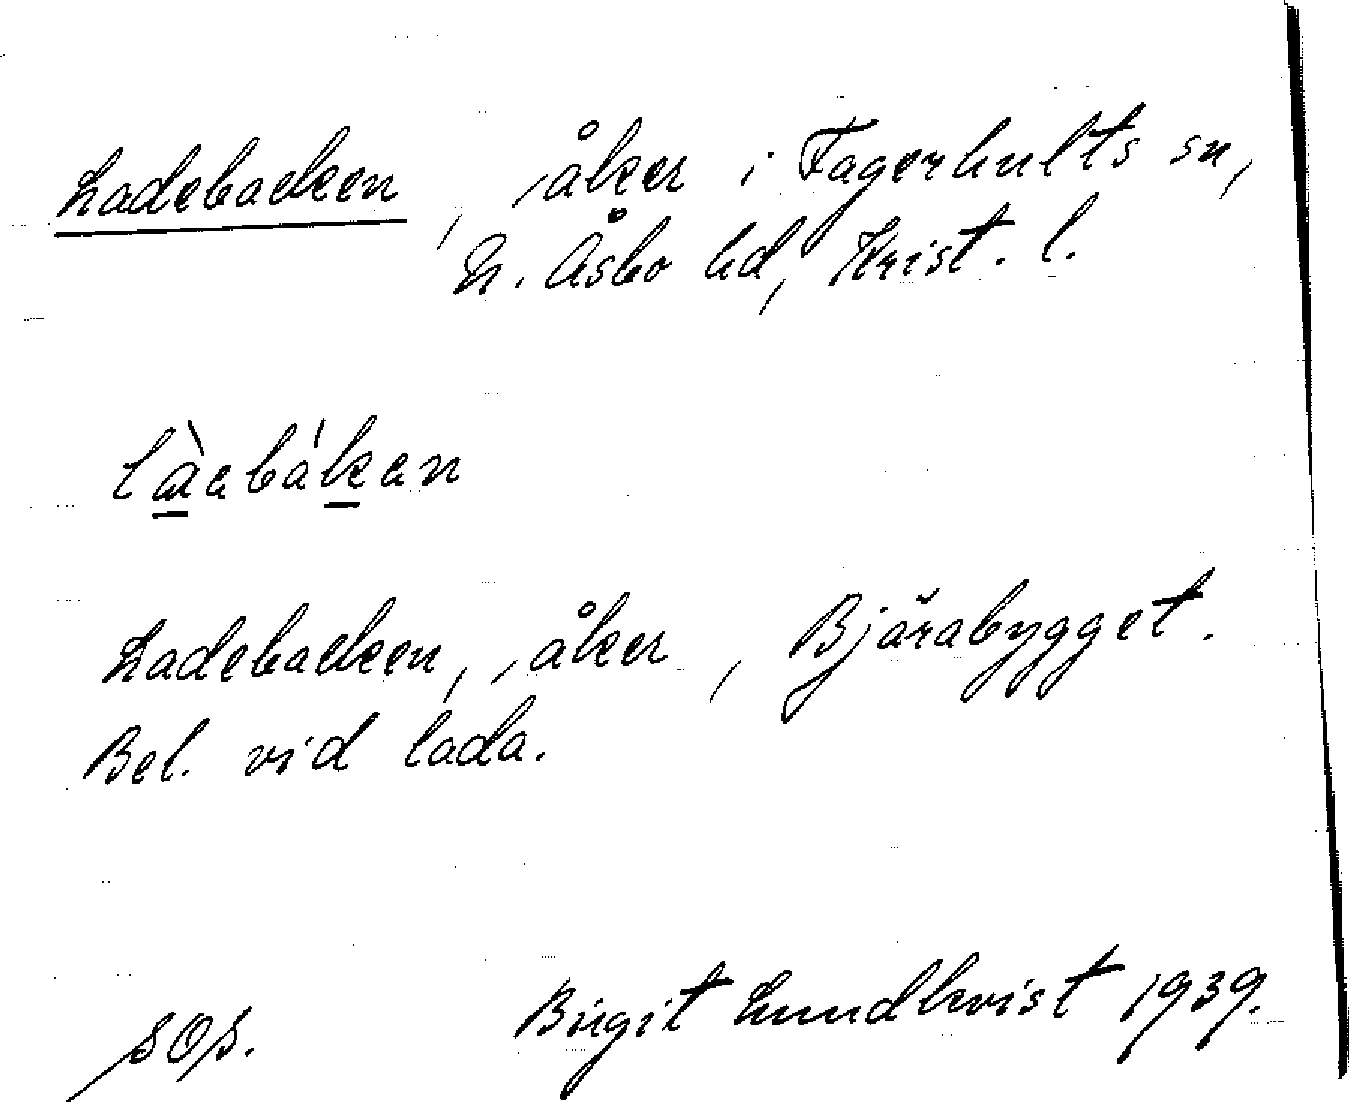 Ladebacken, åker i Fagerhults sn,
N. Åsbo hd, Krist. l.
làebáken
Ladebacken, åker, Bjärabygget.
Bel. vid lada.
SOS. Birgit Lundkvist 1939.